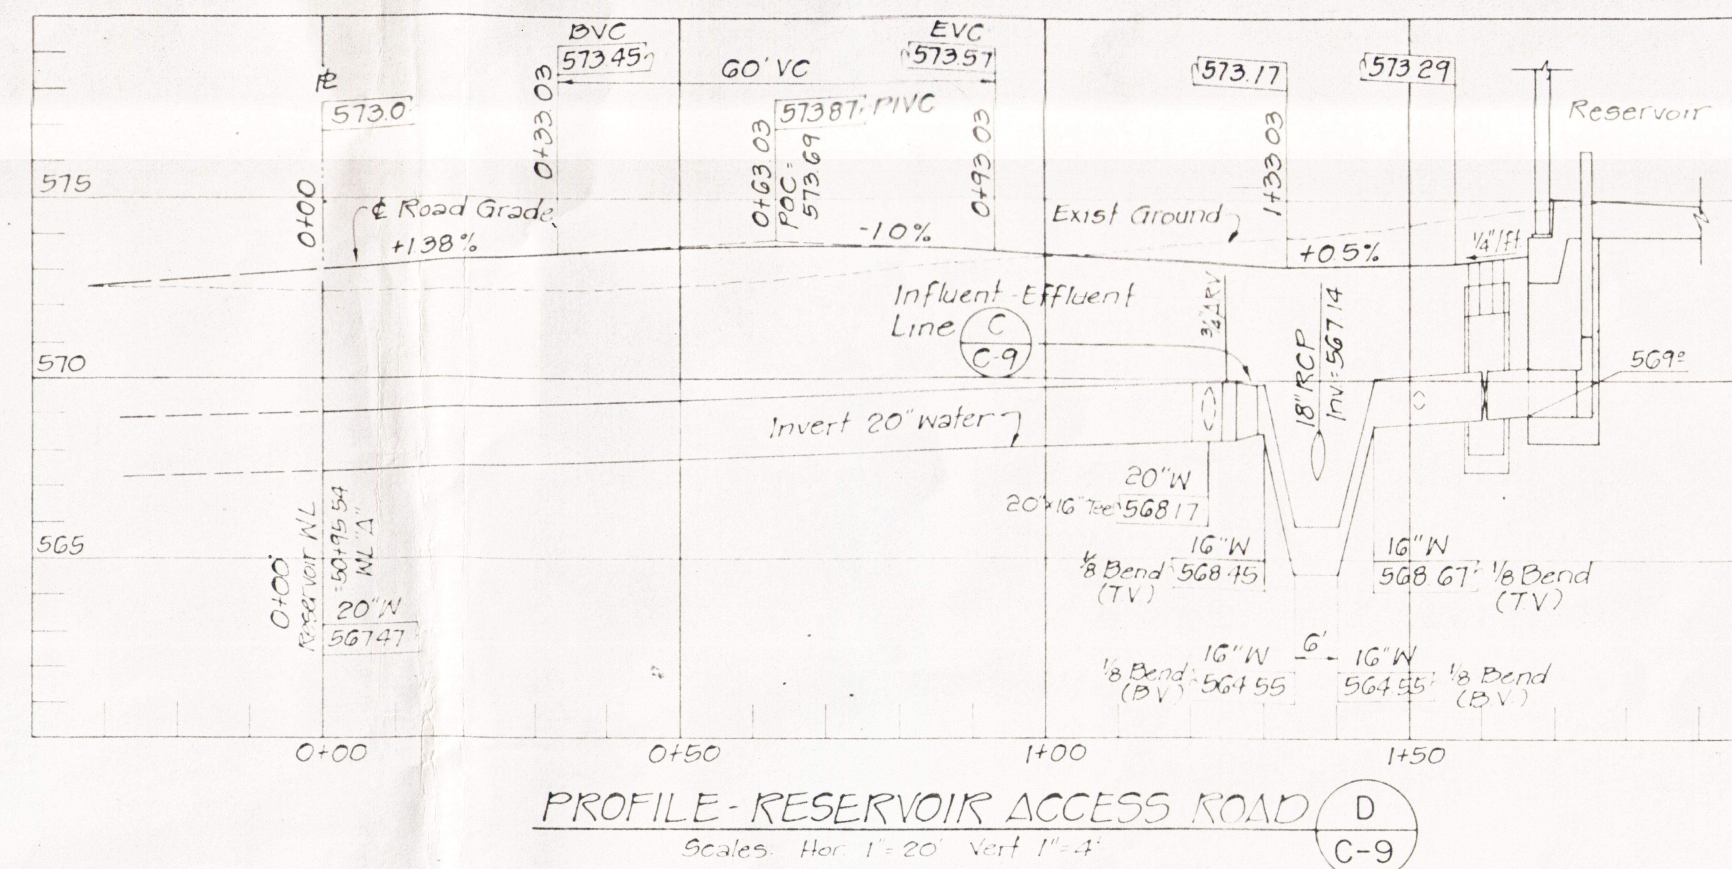 BVC
573.45
60' VC
EVC
573.57
573.17
573.29
Reservoir
℄
573.0
0+33.03
573.87 PIVC
0+63.03
POC =
573.69
0+93.03
1+33.03
575
0+00
℄ Road Grade
+1.38%
-1.0%
Exist Ground
+0.5%
1/4"/ft.
Influent-Effluent
Line
C
C-9
3/4" ARV
18" RCP
Inv = 567.14
570
569.0
Invert 20" Water
20" W
20"x16" Tee 568.17
565
0+00
Reservoir WL
= 50+95.54
WL "A"
20" W
567.47
16" W
1/8 Bend 568.45
(T.V.)
16" W
568.67 1/8 Bend
(T.V.)
16" W
1/8 Bend 564.55
(B.V.)
6'
16" W
564.55 1/8 Bend
(B.V.)
0+00
0+50
1+00
1+50
PROFILE - RESERVOIR ACCESS ROAD
D
C-9
Scales: Hor. 1"=20' Vert 1"=4'